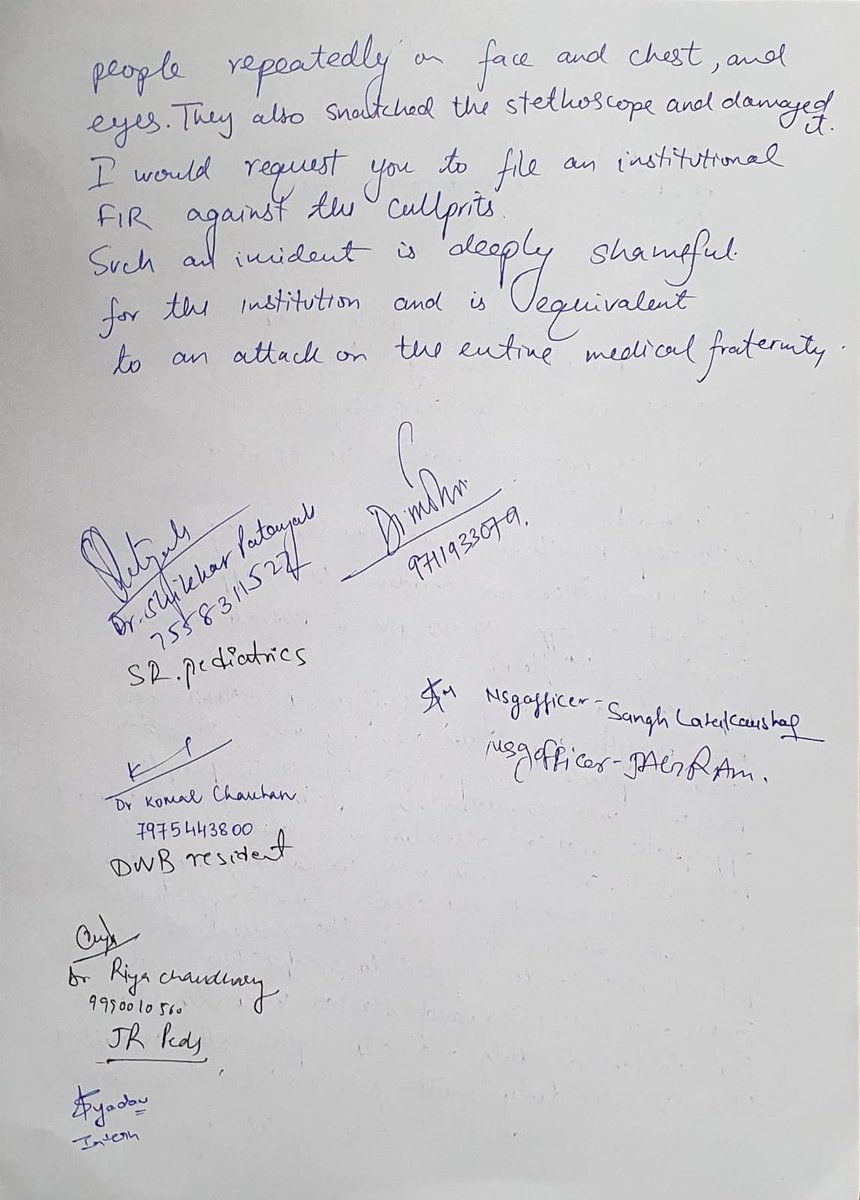 people repeatedly on face and chest, and
eyes. They also snatched the stethoscope and damaged it.
I would request you to file an institutional
FIR against the cullprits.
Such an incident is deeply shameful
for the institution and is equivalent
to an attack on the entire medical fraternity.
9711933079.
Dr. Shikhar Patanjali
7558311527
SR. pediatrics
Nsg officer - Sangh
Nsg officer - JAGRAM.
Dr Komal Chauhan
7975443800
DNB resident
Dr Riya chaudhary
9990010560
JR Peds
yadav
Intern